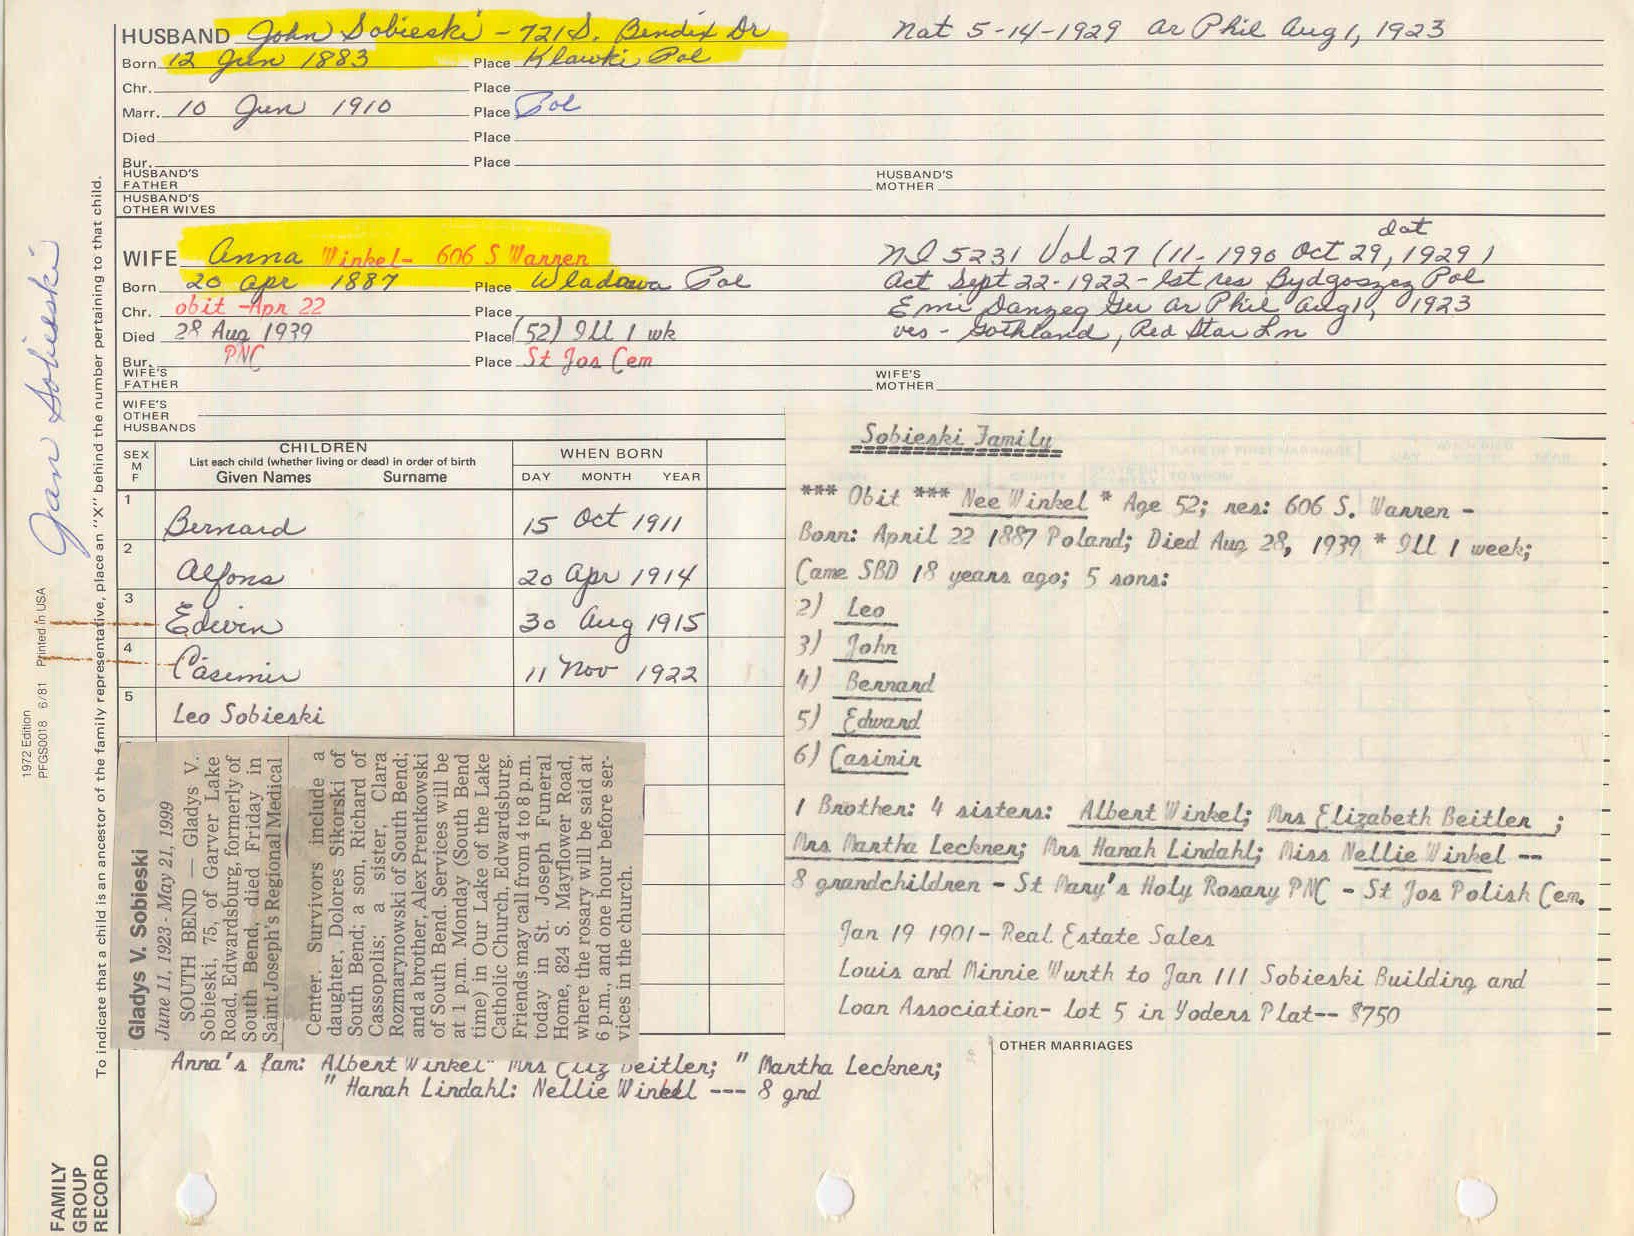 HUSBAND John Sobieski - 721 S. Bendix Dr Nat 5-14-1929 ar Phil Aug 1, 1923
Born 12 Jun 1883 Place Klawki Pol
Chr. Place
Marr. 10 Jun 1910 Place Pol
Died Place
Bur. Place
HUSBAND'S FATHER HUSBAND'S MOTHER
HUSBAND'S OTHER WIVES
WIFE Anna Winkel- 606 S Warren
Born 20 Apr 1887 Place Wladowa Pol
Chr. obit -Apr 22 Place
Died 28 Aug 1939 Place (52) Ill 1 wk
Bur. PNC Place St Jos Cem
dat
NI 5231 Vol 27 (11-1990 Oct 29, 1929)
Act Sept 22-1922-lst res Bydgoszez Pol
Emi Danzeg Gu ar Phil Aug 1, 1923
ves - Gothland, Red Star Ln
WIFE'S FATHER WIFE'S MOTHER
WIFE'S OTHER HUSBANDS
SEX M F
CHILDREN
List each child (whether living or dead) in order of birth
Given Names Surname
WHEN BORN
DAY MONTH YEAR
1 Bernard 15 Oct 1911
2 Alfons 20 Apr 1914
3 Edwin 30 Aug 1915
4 Casimir 11 Nov 1922
5 Leo Sobieski
Sobieski Family
*** Obit *** Nee Winkel * Age 52; res: 606 S. Warren -
Born: April 22 1887 Poland; Died Aug 28, 1939 * Ill 1 week;
Came SBD 18 years ago; 5 sons:
2) Leo
3) John
4) Bernard
5) Edward
6) Casimir
1 Brother: 4 sisters: Albert Winkel; Mrs Elizabeth Beitler ;
Mrs Martha Leckner; Mrs Hanah Lindahl; Miss Nellie Winkel --
8 grandchildren - St Mary's Holy Rosary PNC - St Jos Polish Cem.
Jan 19 1901- Real Estate Sales
Louis and Minnie Wurth to Jan III Sobieski Building and
Loan Association- lot 5 in Yoders Plat-- $750
Gladys V. Sobieski
June 11, 1923 - May 21, 1999
SOUTH BEND — Gladys V.
Sobieski, 75, of Garver Lake
Road, Edwardsburg, formerly of
South Bend, died Friday in
Saint Joseph's Regional Medical
Center. Survivors include a
daughter, Dolores Sikorski of
South Bend; a son, Richard of
Cassopolis; a sister, Clara
Rozmarynowski of South Bend;
and a brother, Alex Prentkowski
of South Bend. Services will be
at 1 p.m. Monday (South Bend
time) in Our Lake of the Lake
Catholic Church, Edwardsburg.
Friends may call from 4 to 8 p.m.
today in St. Joseph Funeral
Home, 824 S. Mayflower Road,
where the rosary will be said at
6 p.m., and one hour before ser-
vices in the church.
Anna's fam: Albert Winkel" Mrs Eliz Beitler; " Martha Leckner;
" Hanah Lindahl: Nellie Winkell --- 8 gnd
OTHER MARRIAGES
Jan Sobieski
To indicate that a child is an ancestor of the family representative, place an "X" behind the number pertaining to that child.
1972 Edition
PFGS0018 6/81 Printed in USA
FAMILY
GROUP
RECORD